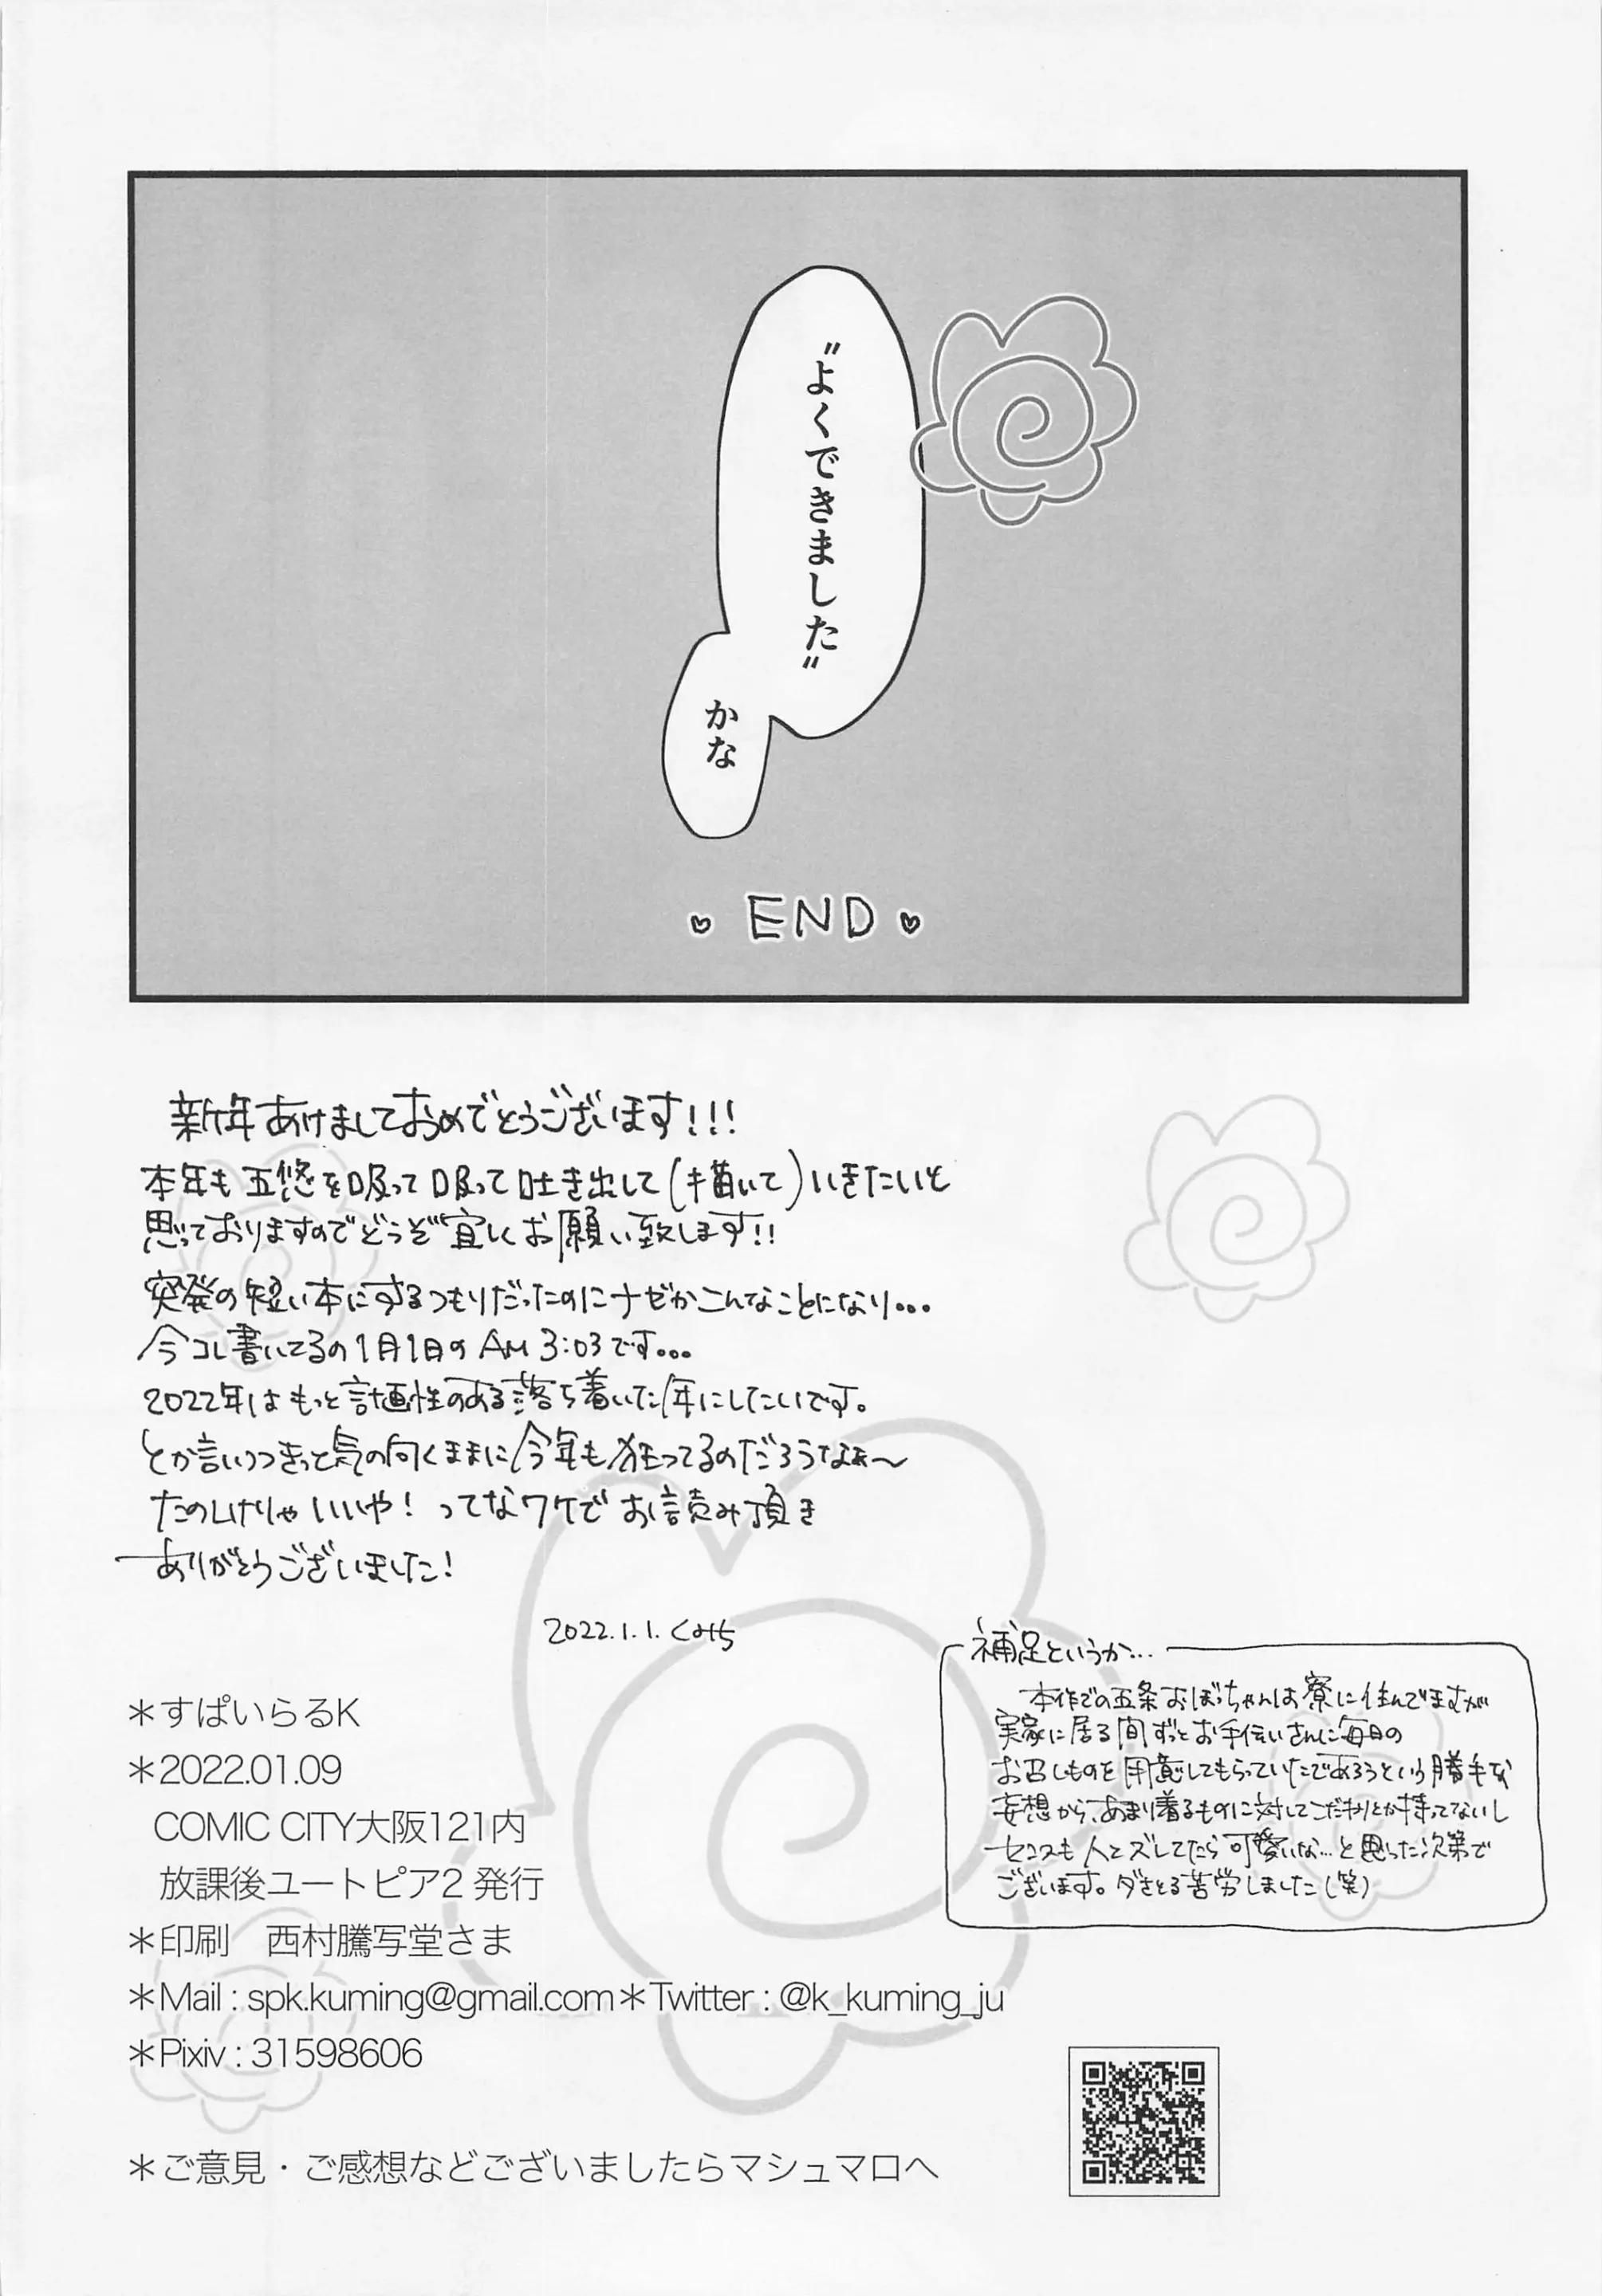 〝よくできました〟
かな
END
新年あけましておめでとうございます!!!
本年も五悠を吸って吸って吐き出して(描いて)いきたいと
思っておりますのでどうぞ宜しくお願い致します!!
突発の短い本にするつもりだったのにナゼかこんなことになり...
今コレ書いてるの1月1日のAM 3:03です...
2022年はもっと計画性のある落ち着いた年にしたいです。
とか言いつつきっと気の向くままに今年も狂ってるのだろうなぁ〜
たのしけりゃいいや!ってなワケでお読み頂き
ありがとうございました!
2022.1.1.くみち
補足というか...
本作での五条おぼっちゃんは寮に住んでますが
実家に居る間ずっとお手伝いさんに毎日の
お召しものを用意してもらっていたであろうという勝手な
妄想から、あまり着るものに対してこだわりとか持ってないし
センスも人とズレてたら可愛いな...と思った次第で
ございます。ダサさとる苦労しました(笑)
＊すぱいらるK
＊2022.01.09
COMIC CITY大阪121内
放課後ユートピア2 発行
＊印刷　西村謄写堂さま
＊Mail : spk.kuming@gmail.com＊Twitter : @k_kuming_ju
＊Pixiv : 31598606
＊ご意見・ご感想などございましたらマシュマロへ